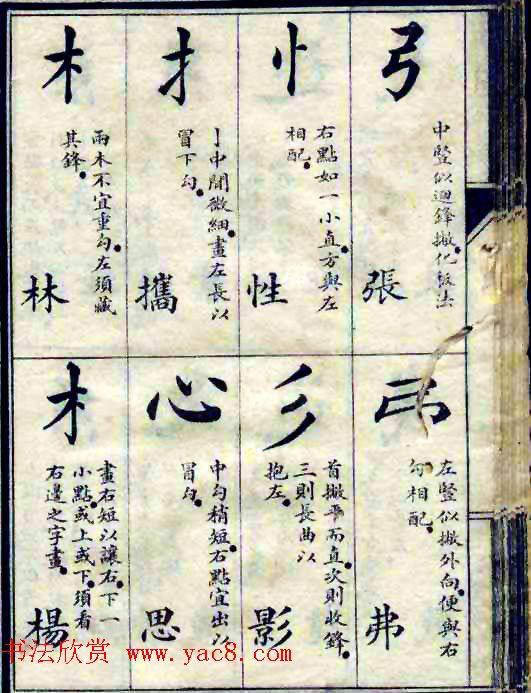 弓
中豎似迴鋒撇化
法
張
忄
右點如一小直方與左
相配
性
扌
亅中間微細畫左長以
冒下勾
攜
木
兩木不宜重勾左須藏
其鋒
林
左豎似撇外向便與右
勾相配
弗
彡
首撇平而直次則收鋒
三則長曲以
抱左
影
心
中勾稍短右點宜出以
冒勾
思
木
畫右短以讓右下一
小點或上或下須看
右邊之字畫
楊
书法欣赏 www.yac8.com